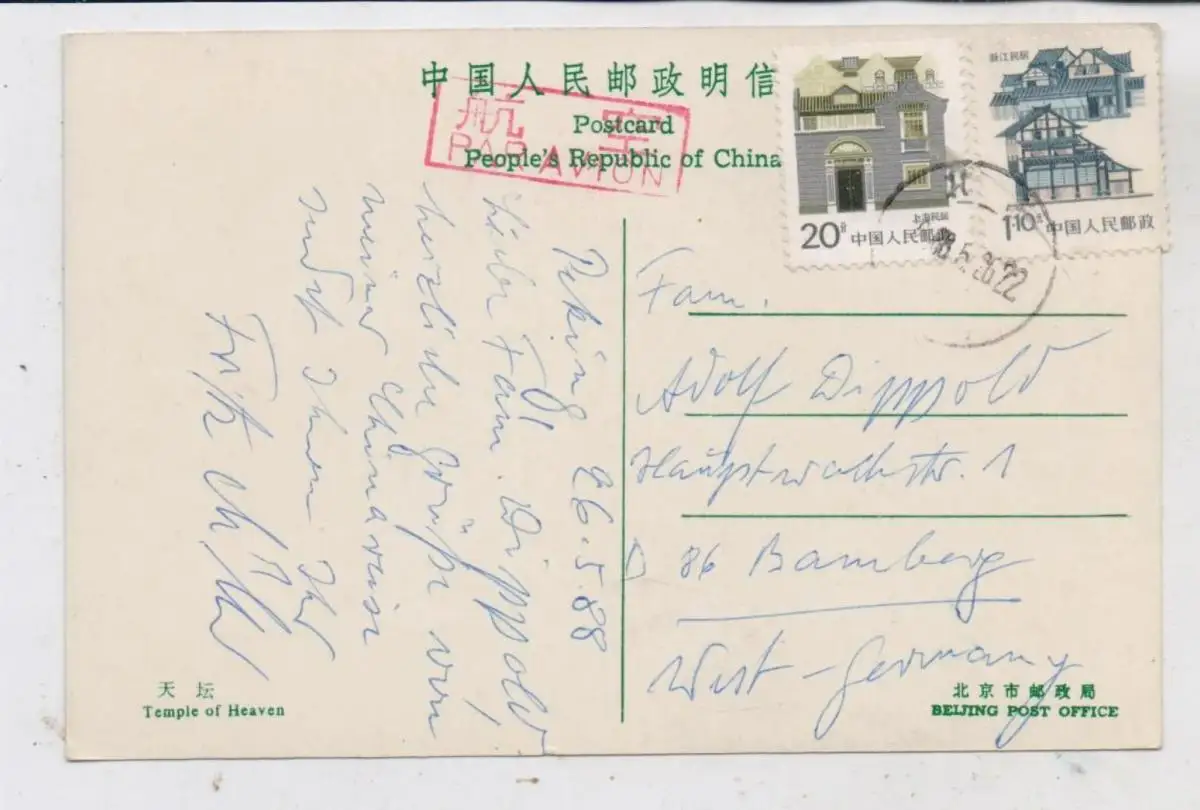 中国人民邮政明信
Postcard
People's Republic of China
航 空
PAR AVION
上海民居
20分 中国人民邮政
浙江民居
1·10元 中国人民邮政
Peking 26.5.88
Liebe Fam. Dippold!
herzliche Grüße von
meiner Chinareise
sendet Ihnen Ihr
Fritz
Fam.
Adolf Dippold
Hauptwachstr. 1
D 86 Bamberg
West-Germany
天坛
Temple of Heaven
北京市邮政局
BEIJING POST OFFICE